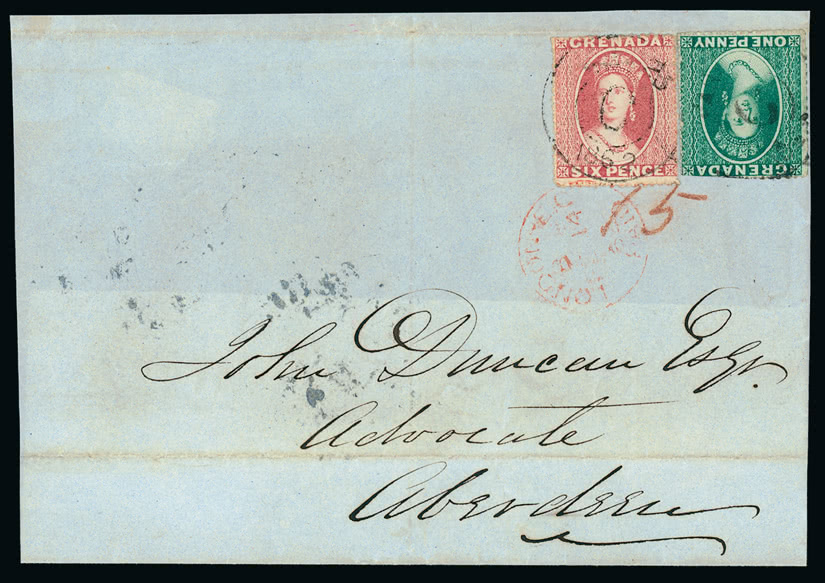 GRENADA
SIX PENCE
GRENADA
ONE PENNY
15
John Duncan Esqr.
Advocate
Aberdeen